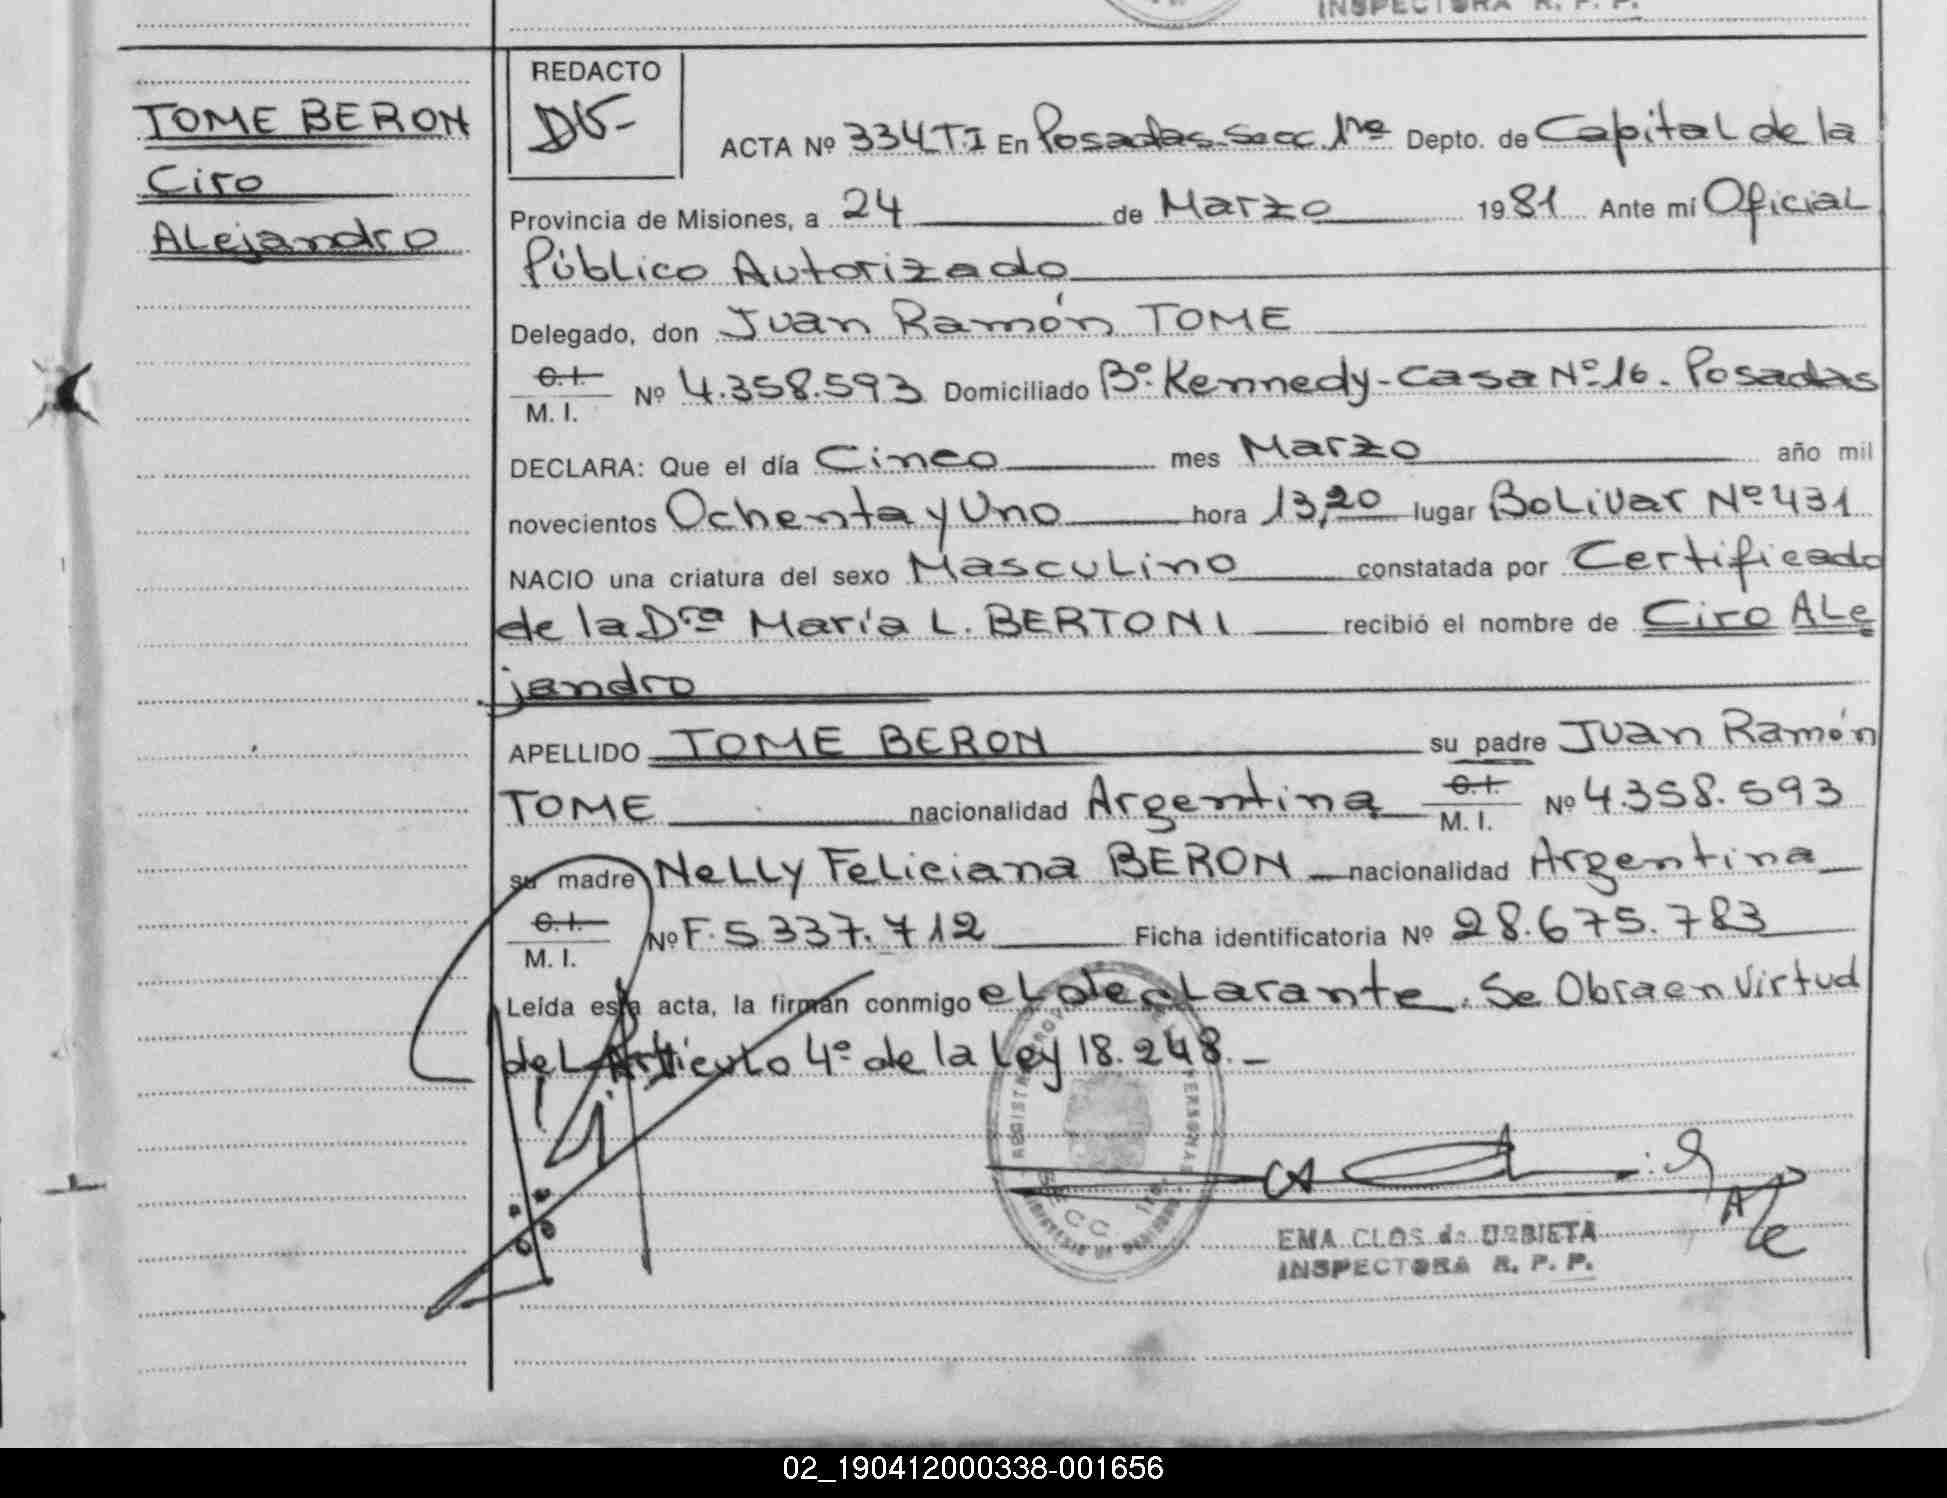 INSPECTORA R. P. P.
TOME BERON
Ciro
Alejandro
REDACTO
ACTA Nº 334 T.I En Posadas-Secc. 1ra Depto. de Capital de la
Provincia de Misiones, a 24 de Marzo 1981 Ante mí Oficial
Público Autorizado
Delegado, don Juan Ramón TOME
C.I. / M. I. Nº 4.358.593 Domiciliado Bº. Kennedy-Casa Nº 16. Posadas
DECLARA: Que el día Cinco mes Marzo año mil
novecientos Ochenta y Uno hora 13,20 lugar Bolivar Nº 431
NACIO una criatura del sexo Masculino constatada por Certificado
de la Dra María L. BERTONI recibió el nombre de Ciro Ale
jandro
APELLIDO TOME BERON su padre Juan Ramón
TOME nacionalidad Argentina C.I. / M. I. Nº 4.358.593
su madre Nelly Feliciana BERON nacionalidad Argentina
C.I. / M. I. Nº F. 5337.712 Ficha identificatoria Nº 28.675.783
Leída esta acta, la firman conmigo el declarante. Se Obra en Virtud
del Artículo 4º de la Ley 18.248.-
SECC 1ra.
EMA CLOS de URBIETA
INSPECTORA R. P. P.
02_190412000338-001656